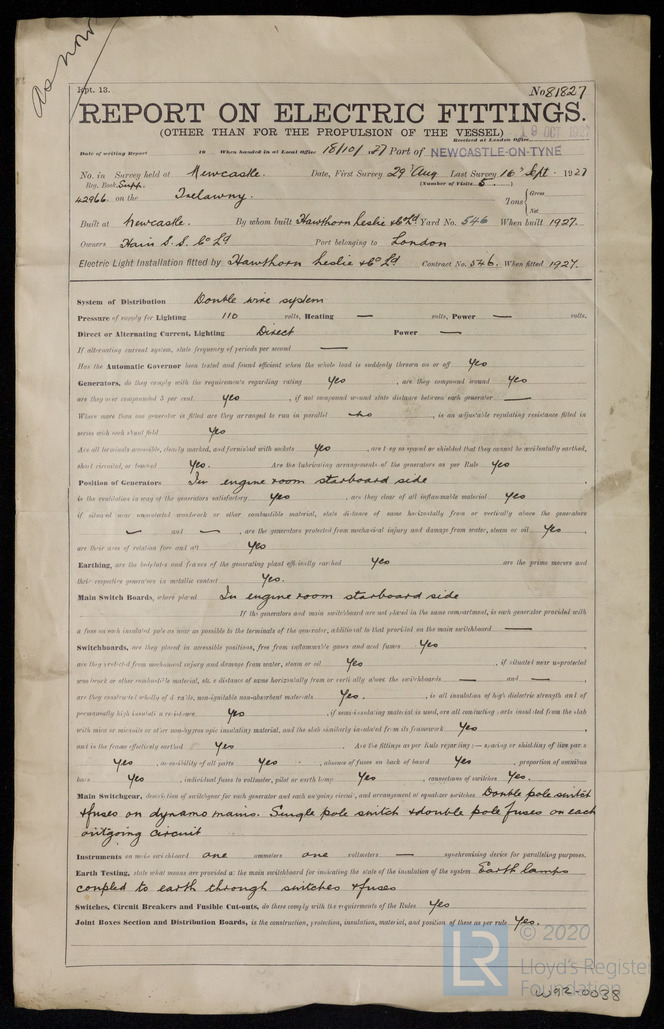 as now
Rpt. 13.
No 81827
REPORT ON ELECTRIC FITTINGS.
(OTHER THAN FOR THE PROPULSION OF THE VESSEL)
Received at London Office 19 OCT 1927
Date of writing Report 19 When handed in at Local Office 18/10/27 Port of NEWCASTLE-ON-TYNE
No. in Survey held at Newcastle. Date, First Survey 29 Aug Last Survey 16 Sept. 1927
Reg. Book. Supp. (Number of Visits 5)
42966. on the Trelawny. Tons { Gross Net
Built at Newcastle. By whom built Hawthorn Leslie & Co Ld Yard No. 546 When built 1927.
Owners Hain S.S. Co Ld Port belonging to London
Electric Light Installation fitted by Hawthorn Leslie & Co Ld Contract No. 546. When fitted 1927.
System of Distribution Double wire system
Pressure of supply for Lighting 110 volts, Heating — volts, Power — volts.
Direct or Alternating Current, Lighting Direct Power —
If alternating current system, state frequency of periods per second —
Has the Automatic Governor been tested and found efficient when the whole load is suddenly thrown on or off Yes
Generators, do they comply with the requirements regarding rating Yes , are they compound wound Yes
are they over compounded 5 per cent. Yes , if not compound wound state distance between each generator —
Where more than one generator is fitted are they arranged to run in parallel no , is an adjustable regulating resistance fitted in
series with each shunt field Yes
Are all terminals accessible, clearly marked, and furnished with sockets Yes , are they so spaced or shielded that they cannot be accidentally earthed,
short circuited, or touched Yes. Are the lubricating arrangements of the generators as per Rule Yes
Position of Generators In engine room starboard side
is the ventilation in way of the generators satisfactory Yes , are they clear of all inflammable material Yes
if situated near unprotected woodwork or other combustible material, state distance of same horizontally from or vertically above the generators
— and — , are the generators protected from mechanical injury and damage from water, steam or oil Yes ,
are their axes of rotation fore and aft Yes
Earthing, are the bedplates and frames of the generating plant efficiently earthed Yes are the prime movers and
their respective generators in metallic contact Yes.
Main Switch Boards, where placed In engine room starboard side
If the generators and main switchboard are not placed in the same compartment, is each generator provided with
a fuse on each insulated pole as near as possible to the terminals of the generator, additional to that provided on the main switchboard —
Switchboards, are they placed in accessible positions, free from inflammable gases and acid fumes Yes
are they protected from mechanical injury and damage from water, steam or oil Yes , if situated near unprotected
woodwork or other combustible material, state distance of same horizontally from or vertically above the switchboards — and — ,
are they constructed wholly of durable, non-ignitable non-absorbent materials Yes. , is all insulation of high dielectric strength and of
permanently high insulation resistance Yes , if semi-insulating material is used, are all conducting parts insulated from the slab
with mica or micanite or other non-hygroscopic insulating material, and the slab similarly insulated from its framework Yes ,
and is the frame effectively earthed Yes Are the fittings as per Rule regarding:— spacing or shielding of live parts
Yes , accessibility of all parts Yes , absence of fuses on back of board Yes , proportion of omnibus
bars Yes , individual fuses to voltmeter, pilot or earth lamp Yes , connections of switches Yes.
Main Switchgear, description of switchgear for each generator and each outgoing circuit, and arrangement of equalizer switches Double pole switch
& fuses on dynamo mains. Single pole switch & double pole fuses on each
outgoing circuit
Instruments on main switchboard one ammeters one voltmeters — synchronising device for paralleling purposes.
Earth Testing, state what means are provided at the main switchboard for indicating the state of the insulation of the system Earth lamps
coupled to earth through switches & fuses
Switches, Circuit Breakers and Fusible Cut-outs, do these comply with the requirements of the Rules Yes
Joint Boxes Section and Distribution Boards, is the construction, protection, insulation, material, and position of these as per rule Yes.
LR © 2020
Lloyd's Register
Foundation
W92-0038